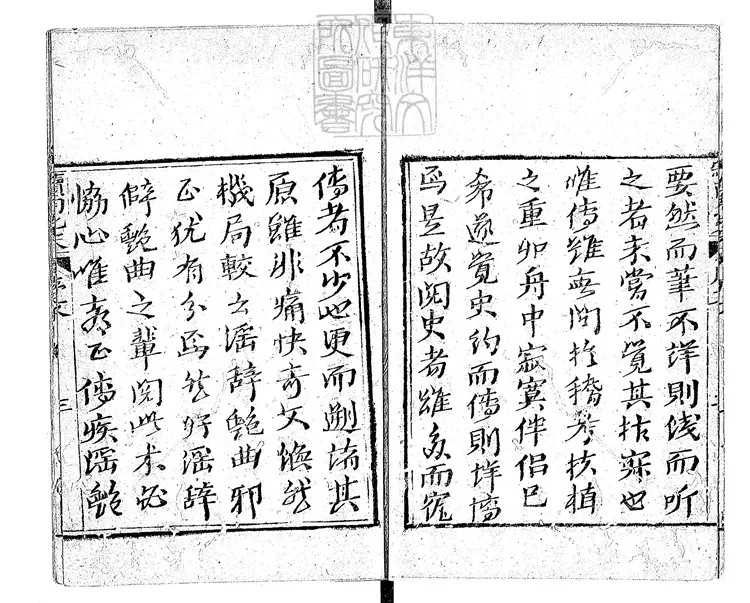 要然而筆不詳則伐而听
之者未嘗不覺其枯寂也
唯傳雖無関於稽考扶植
之重而舟中寂寞伴侶已
希遂覺史約而傳則詳博
焉是故閲史者雖多而
傳者不少也更而遡流其
原雖非痛快奇文煥然
機局較之淫辞艶曲邪
正犹有分焉然好淫辞
僻艶曲之輩閲此未必
協心唯吝正傳疾淫艶
三
東洋文
化研究
所圖書